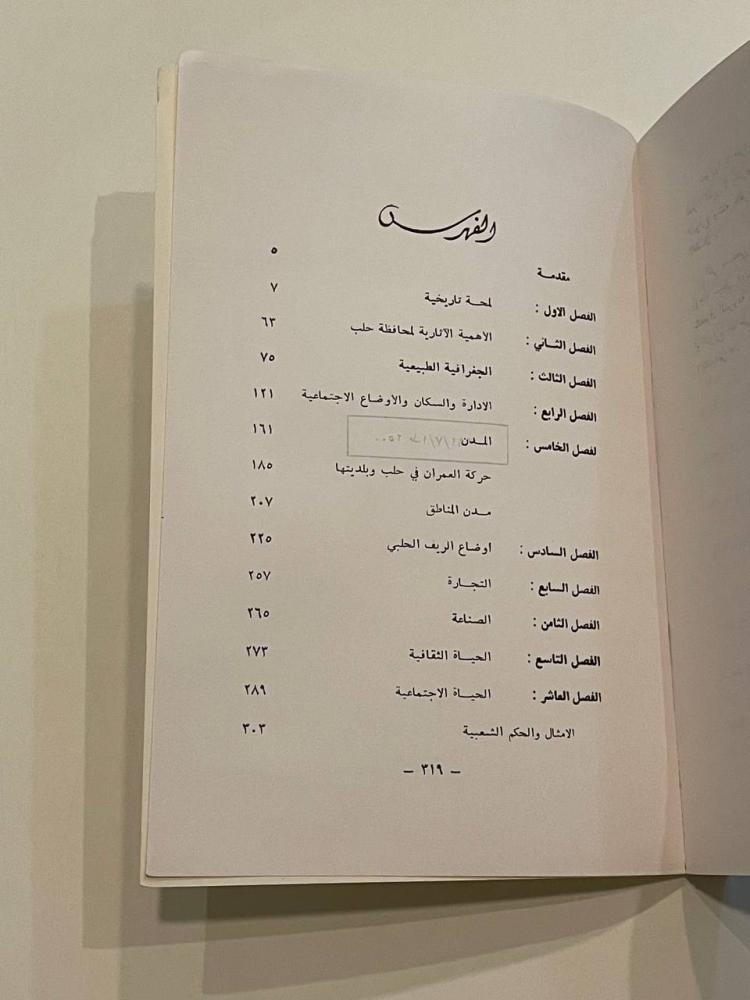 الفهرس
مقدمـة ٥
الفصل الاول : لمحـة تاريخية ٧
الفصل الثـاني : الأهمية الآثارية لمحافظة حلب ٦٣
الفصل الثالث : الجغرافية الطبيعية ٧٥
الفصل الرابع : الادارة والسكان والأوضاع الاجتماعية ١٢١
لفصل الخامس : المـدن ١٦١
حركة العمران في حلب وبلديتها ١٨٥
مـدن المناطق ٢٠٧
الفصل السادس : اوضاع الريف الحلبي ٢٢٥
الفصل السـابع : التجـارة ٢٥٧
الفصل الثامن : الصناعة ٢٦٥
الفصل التاسع : الحيـاة الثقافية ٢٧٣
الفصل العاشر : الحيـاة الاجتماعية ٢٨٩
الامثال والحكم الشـعبية ٣٠٣
— ٣١٩ —